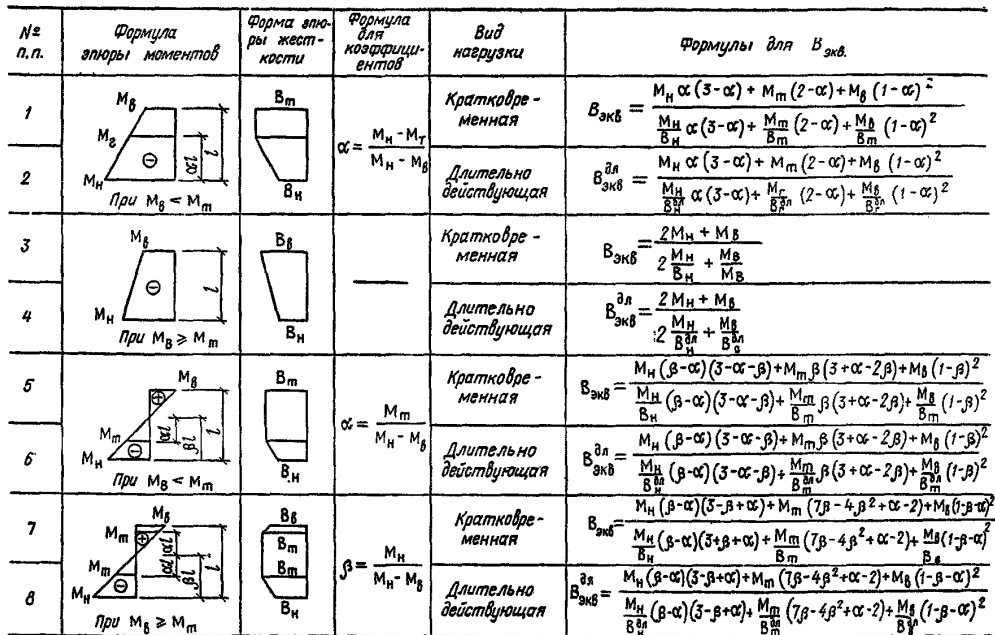 № п.п.
Формула эпюры моментов
Форма эпюры жесткости
Формула для коэффициентов
Вид нагрузки
Формулы для Bэкв.
1
Mв
Mг
Mн
⊖
αl
l
При Mв < Mт
Bт
Bн
α = (Mн − Mт) / (Mн − Mв)
Кратковре-
менная
Bэкв = (Mн α(3−α) + Mт (2−α) + Mв (1−α)²) / (Mн/Bн α(3−α) + Mт/Bт (2−α) + Mв/Bт (1−α)²)
2
Длительно
действующая
Bэкв^дл = (Mн α(3−α) + Mт (2−α) + Mв (1−α)²) / (Mн/Bн^дл α(3−α) + Mг/Bг^дл (2−α) + Mв/Bг^дл (1−α)²)
3
Mв
Mн
⊖
l
При Mв ⩾ Mт
Bв
Bн
—
Кратковре-
менная
Bэкв = (2Mн + Mв) / (2 Mн/Bн + Mв/Mв)
4
Длительно
действующая
Bэкв^дл = (2Mн + Mв) / (2 Mн/Bн^дл + Mв/Bв^дл)
5
Mв
Mт
Mн
⊕
⊖
αl
βl
l
При Mв < Mт
Bт
Bн
α = Mт / (Mн − Mв)
Кратковре-
менная
Bэкв = (Mн (β−α)(3−α−β) + Mт β(3+α−2β) + Mв (1−β)²) / (Mн/Bн (β−α)(3−α−β) + Mт/Bт β(3+α−2β) + Mв/Bт (1−β)²)
6
Длительно
действующая
Bэкв^дл = (Mн (β−α)(3−α−β) + Mт β(3+α−2β) + Mв (1−β)²) / (Mн/Bн^дл (β−α)(3−α−β) + Mт/Bт^дл β(3+α−2β) + Mв/Bт^дл (1−β)²)
7
Mв
Mт
Mт
Mн
⊕
⊖
αl
αl
βl
l
При Mв ⩾ Mт
Bв
Bт
Bт
Bн
β = Mн / (Mн − Mв)
Кратковре-
менная
Bэкв = (Mн (β−α)(3−β+α) + Mт (7β−4β²+α−2) + Mв (1−β−α)²) / (Mн/Bн (β−α)(3+β+α) + Mт/Bт (7β−4β²+α−2) + Mв/Bв (1−β−α)²)
8
Длительно
действующая
Bэкв^дл = (Mн (β−α)(3−β+α) + Mт (7β−4β²+α−2) + Mв (1−β−α)²) / (Mн/Bн^дл (β−α)(3−β+α) + Mт/Bт^дл (7β−4β²+α−2) + Mв/Bв^дл (1−β−α)²)